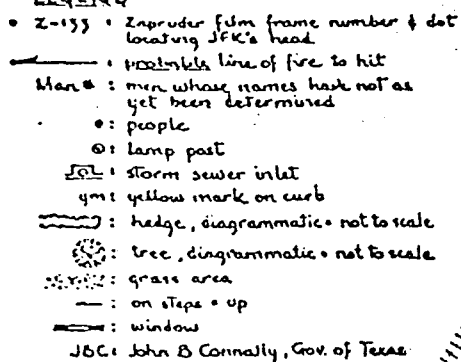 • Z-133 : Zapruder film frame number & dot
locating JFK's head
: probable line of fire to hit
Man • : men whose names have not as
yet been determined
• : people
: lamp post
: storm sewer inlet
ym : yellow mark on curb
: hedge, diagrammatic • not to scale
: tree, diagrammatic • not to scale
: grass area
: on steps = up
: window
JBC : John B Connally, Gov. of Texas